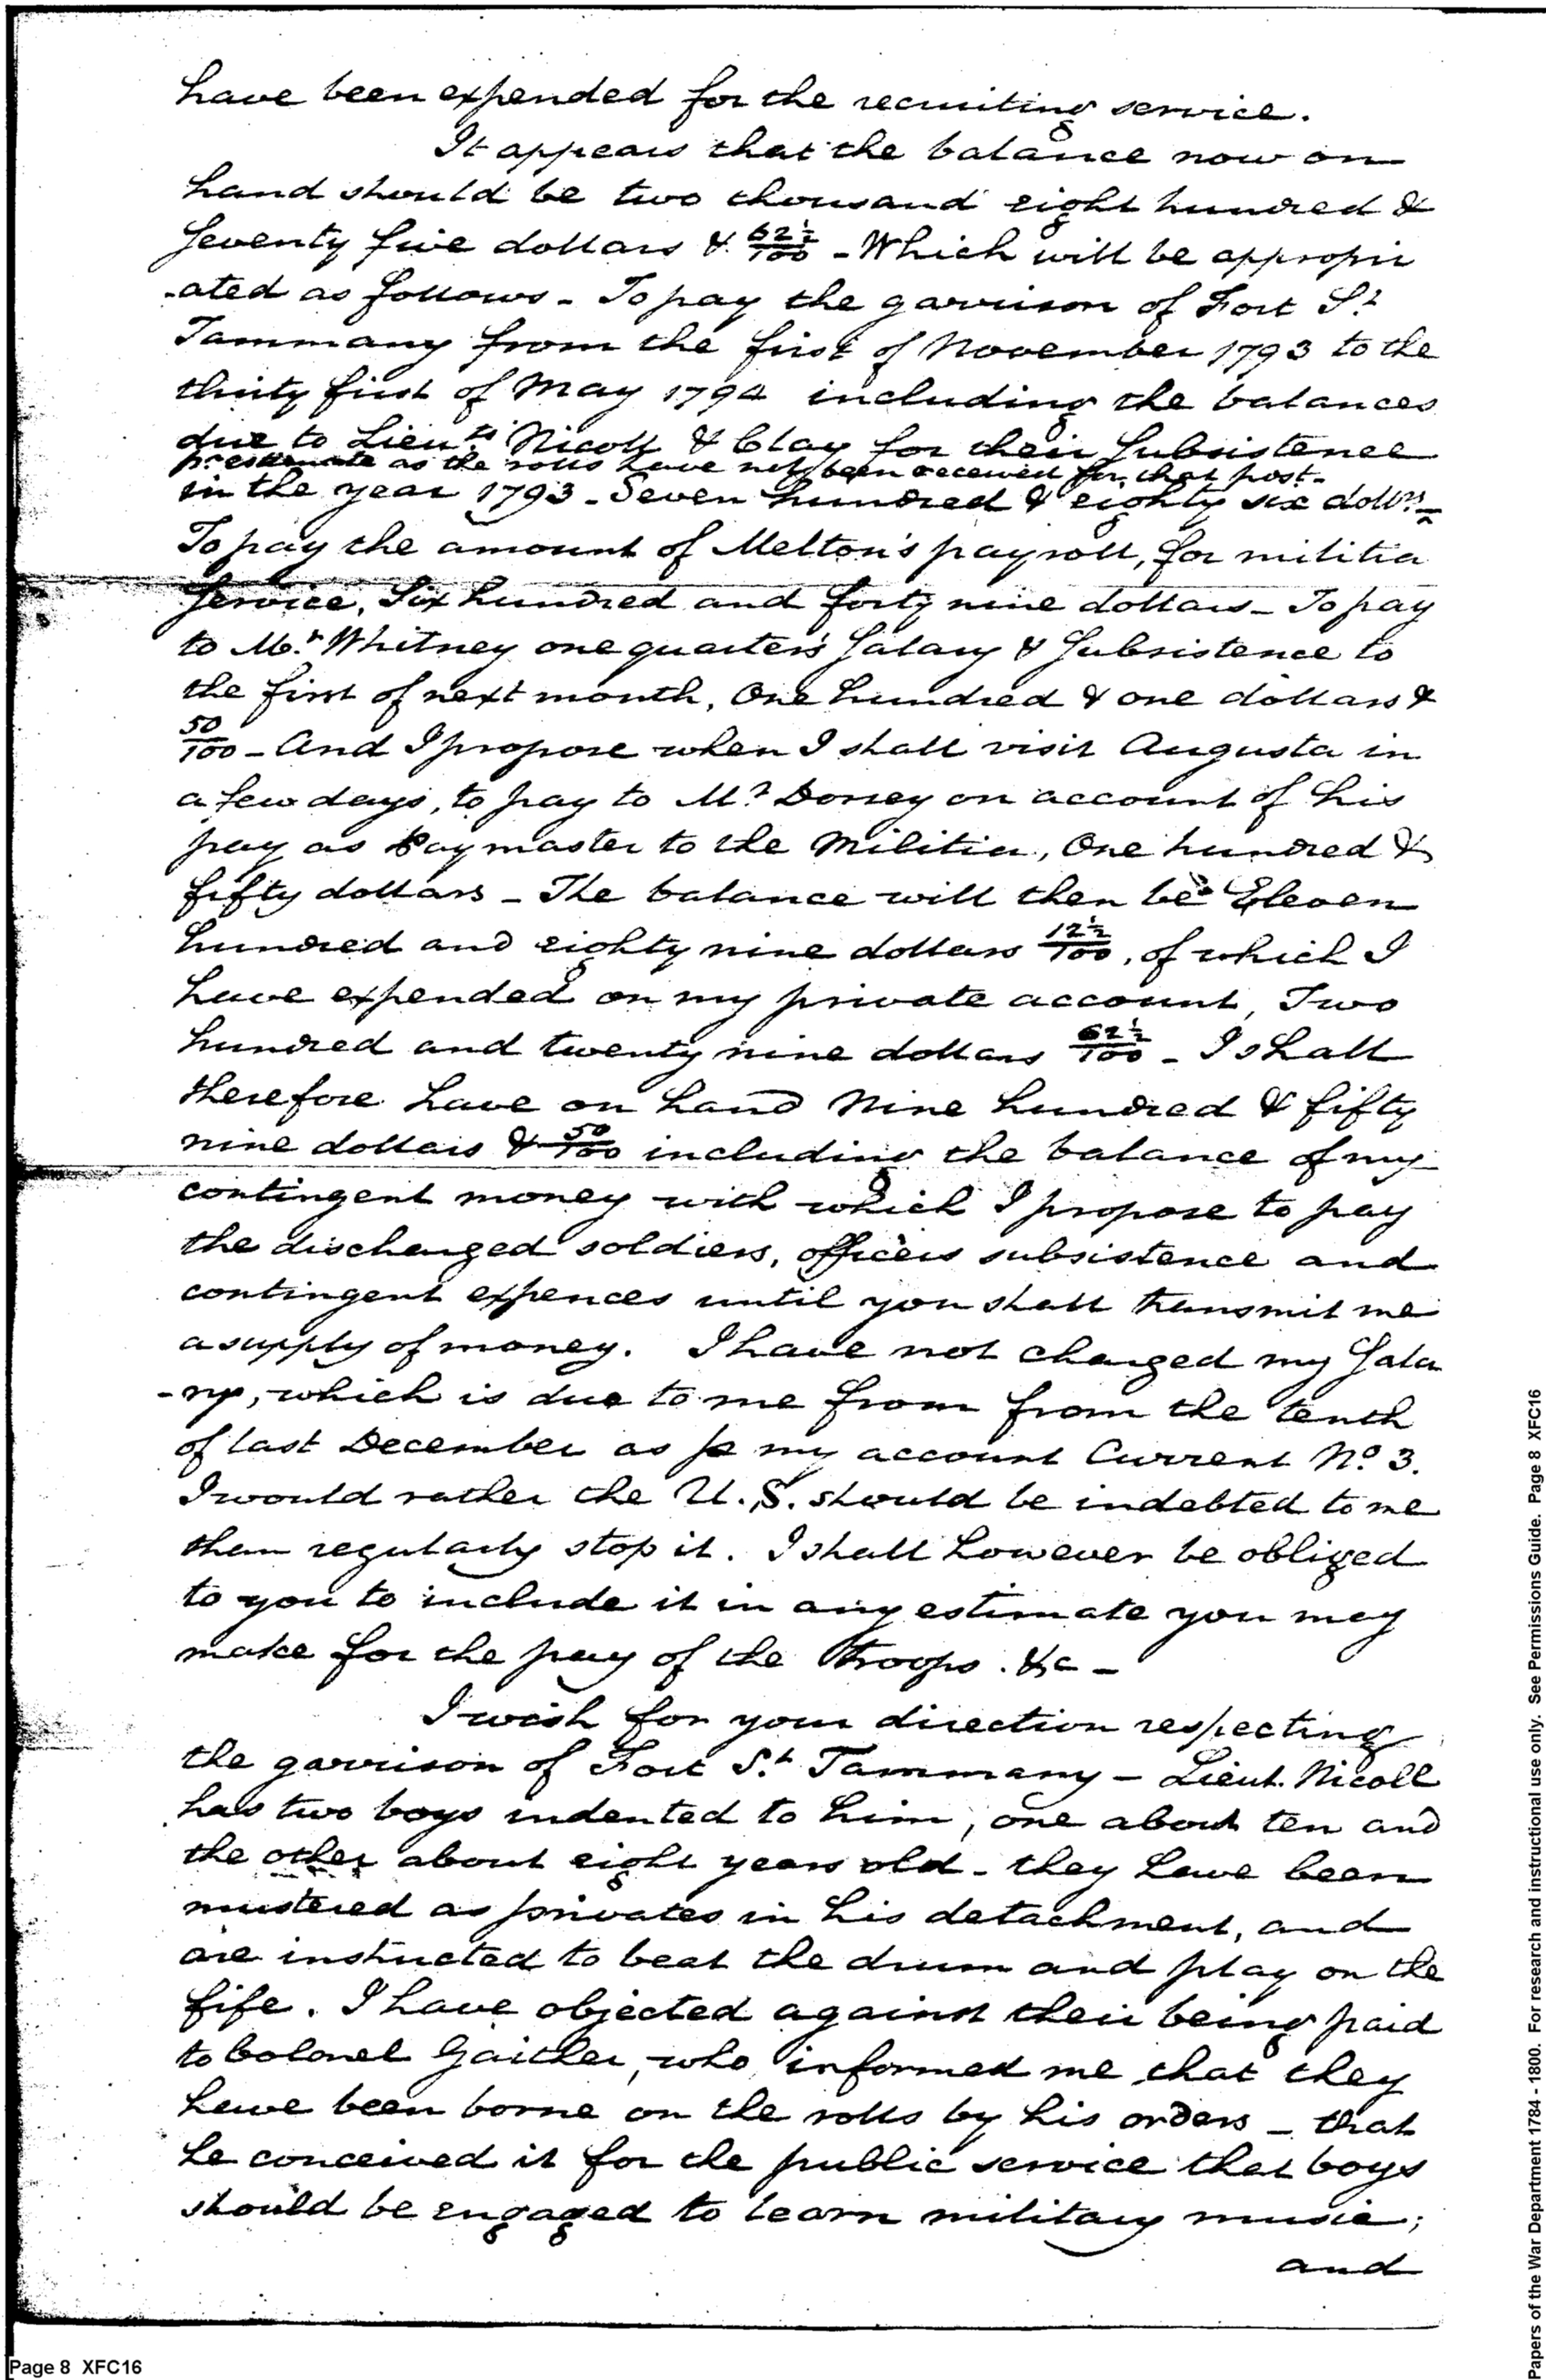 have been expended for the recruiting service.
It appears that the balance now on
hand should be two thousand eight hundred &
Seventy five dollars & 62½/100 - Which will be appropri
-ated as follows - To pay the garrison of Fort St
Tammany from the first of November 1793 to the
thirty first of May 1794 including the balances
due to Lieuts Nicoll & Clay for their Subsistence
pr estimate as the rolls have not been received for that post -
in the year 1793 - Seven hundred & eighty six dollrs -
To pay the amount of Melton's payroll, for militia
Service, Six hundred and forty nine dollars - To pay
to Mr. Whitney one quarter's Salary & Subsistence to
the first of next month, One hundred & one dollars &
50/100 - And I propose when I shall visit Augusta in
a few days, to pay to Mr Dorsey on account of his
pay as Paymaster to the Militia, One hundred &
fifty dollars - The balance will then be Eleven
hundred and eighty nine dollars 12½/100, of which I
have expended on my private account, Two
hundred and twenty nine dollars 62½/100 - I shall
therefore have on hand Nine hundred & fifty
nine dollars & 50/100 including the balance of my
contingent money with which I propose to pay
the discharged soldiers, officers subsistence and
contingent expences until you shall transmit me
a supply of money. I have not charged my Sala
-ry, which is due to me from from the tenth
of last December as pr my account Current No. 3.
I would rather the U. S. should be indebted to me
than regularly stop it. I shall however be obliged
to you to include it in any estimate you may
make for the pay of the Troops. &c -
I wish for your direction respecting
the garrison of Fort St. Tammany - Lieut. Nicoll
has two boys indented to him, one about ten and
the other about eight years old - they have been
mustered as privates in his detachment, and
are instructed to beat the drum and play on the
fife. I have objected against their being paid
to Colonel Gaither, who informed me that they
have been borne on the rolls by his orders - that
he conceived it for the public service that boys
should be engaged to learn military music;
and
Page 8 XFC16
Papers of the War Department 1784 - 1800. For research and instructional use only. See Permissions Guide. Page 8 XFC16